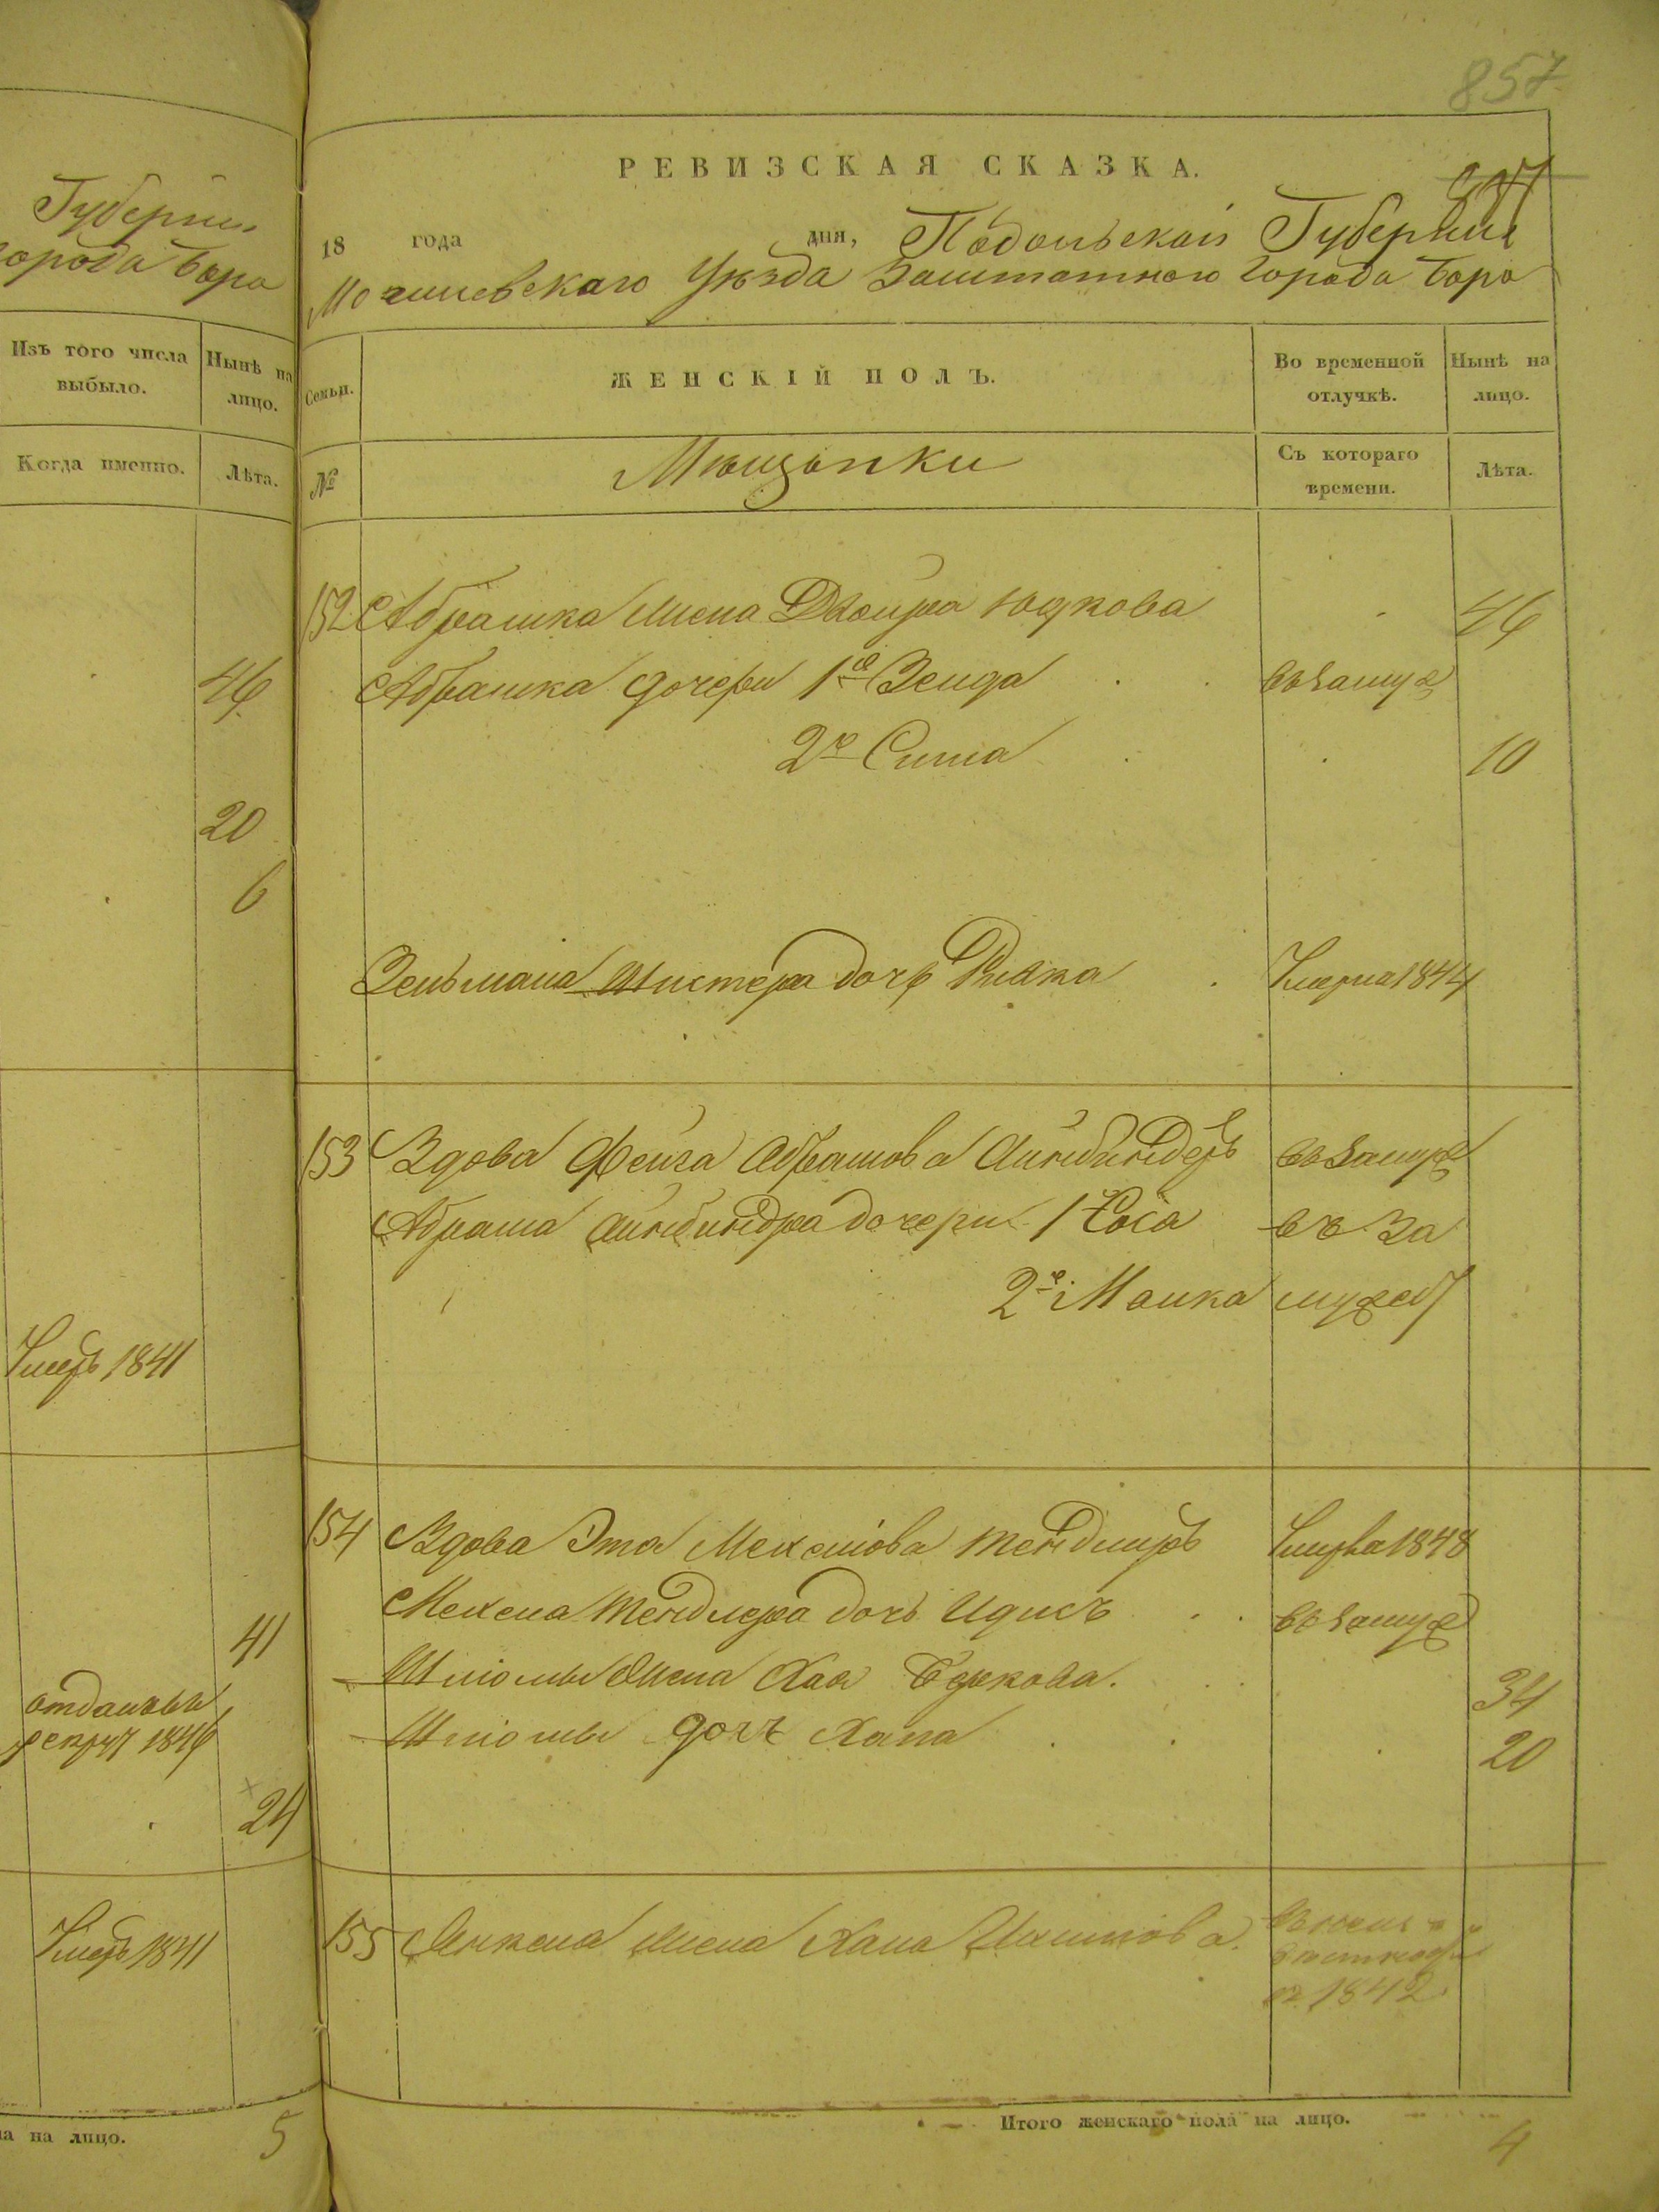 Губерніи
города Бара
Изъ того числа выбыло.
Нынѣ на лицо.
Когда именно.
Лѣта.
46
20
6
Умеръ 1841
41
отданъ въ
рекрут 1846
24
Умеръ 1841
на лицо.
5
857
РЕВИЗСКАЯ СКАЗКА.
18 года дня, Подольской Губерніи
Могилевскаго Уѣзда Заштатнаго города Бара
Семьи.
ЖЕНСКІЙ ПОЛЪ.
Во временной отлучкѣ.
Нынѣ на лицо.
№
Мѣщанки
Съ котораго времени.
Лѣта.
152 Абрашка жена Двойра Юдкова 46
Абрашка дочери 1я Зелда въ замуж
2я Сима 10
Зельмана Шистера дочь Ривка Умерла 1844
153 Вдова Фейга Абрамова Айнбиндеръ въ замуж
Абрама Айнбиндера дочери 1 Хая въ за
2я Малка мужест
154 Вдова Эта Мехелова Тендлиръ Умерла 1848
Мехела Тендлера дочь Идисъ въ замуж
Шліомы жена Хая Беркова. 34
Шліомы дочъ Хана 20
155 Янкеля жена Хана Ицикова.
1842
Итого женскаго пола на лицо.
4